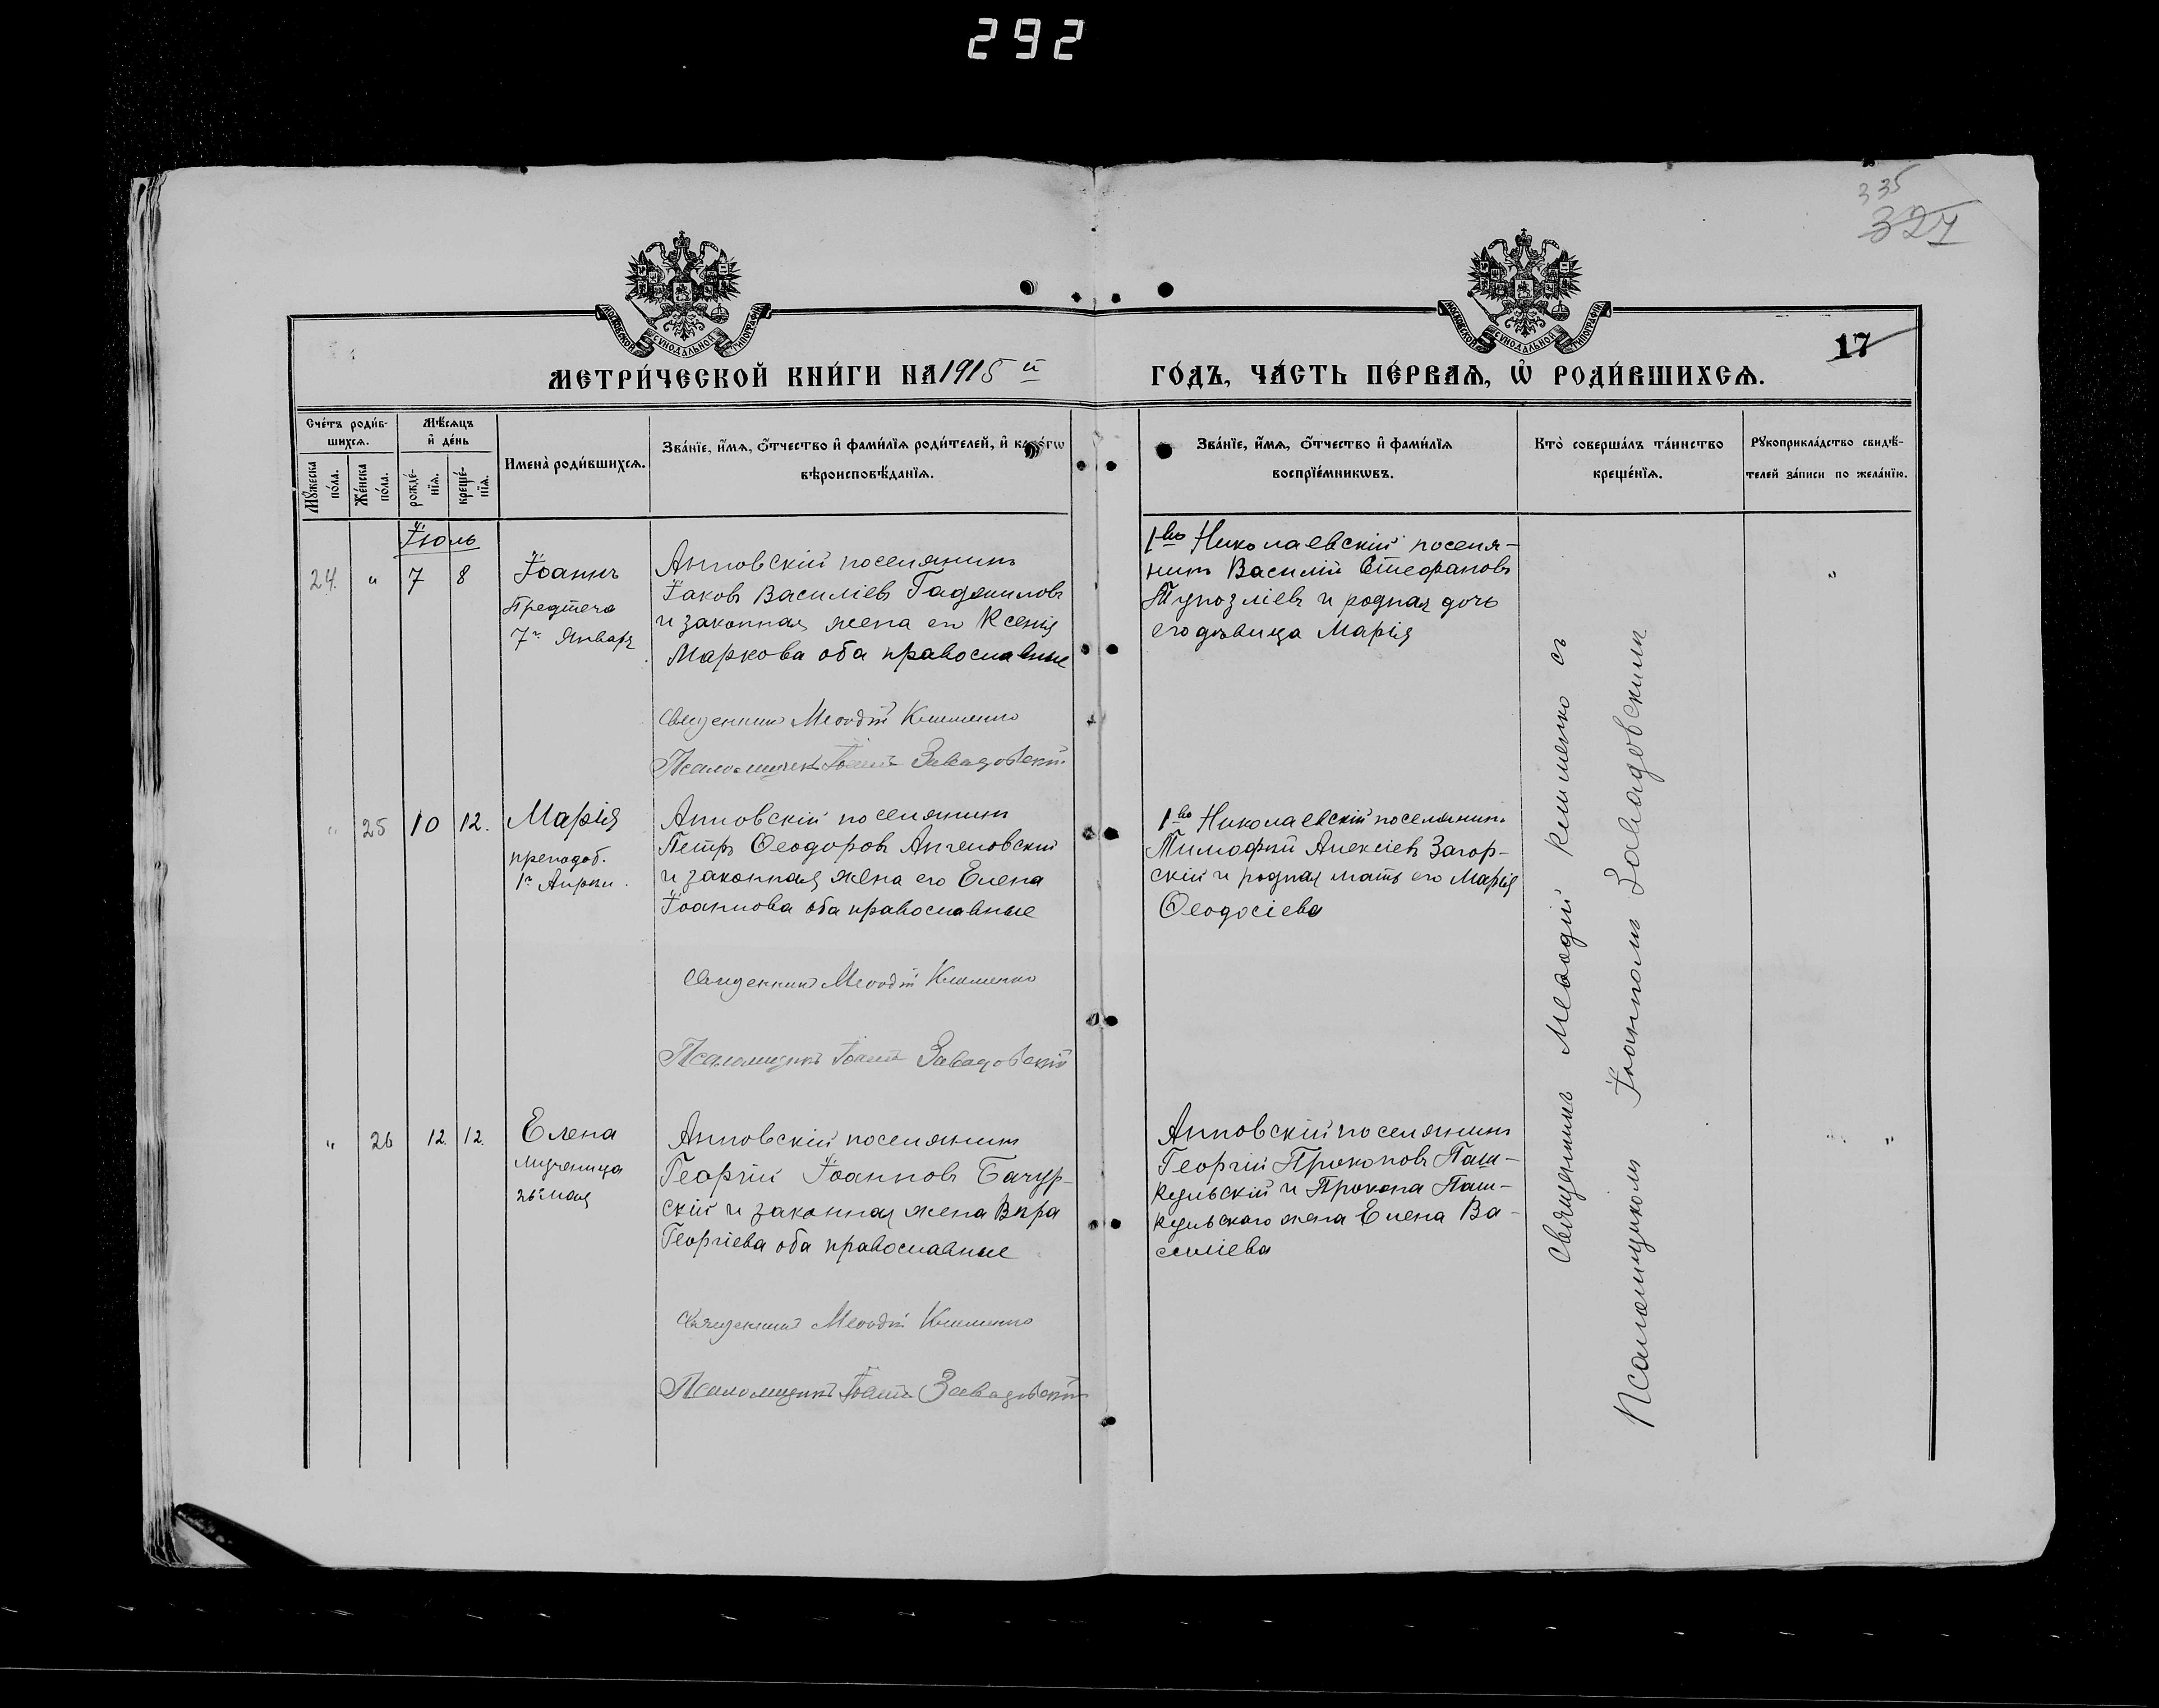 292
335
324
МОСКОВСКОЙ СУНОДАЛЬНОЙ ТИПОГРАФІИ
МОСКОВСКОЙ СУНОДАЛЬНОЙ ТИПОГРАФІИ
17
МЕТРИ́ЧЕСКОЙ КНИ́ГИ НА 1915 й
ГО́ДЪ, ЧА́СТЬ ПЕ́РВАѦ, Ѡ҆ РОДИ́ВШИХСѦ.
Сче́тъ роди́в-
шихсѧ.
Мꙋ́жеска по́ла.
Же́нска по́ла.
Мѣ́сѧцъ
и҆ де́нь
рожде́-
нїѧ.
креще́-
нїѧ.
Имена̀ роди́вшихсѧ.
Зва́нїе, и҆́мѧ, о҆́тчество и҆ фами́лїѧ роди́телей, и҆ како́гѡ
вѣроисповѣ́данїѧ.
Зва́нїе, и҆́мѧ, о҆́тчество и҆ фами́лїѧ
воспрїе́мникѡвъ.
Кто̀ соверша́лъ та́инство
креще́нїѧ.
Рꙋкоприкла́дство свидѣ́-
телей за́писи по жела́нїю.
Іюль
24. " 7 8
Іоаннъ
Предтеча
7го Января
Анновскій поселянинъ
Іаковъ Василіевъ
и законная жена его Ксенія
Маркова оба православные
Священникъ Меѳодій Клименко
Псаломщикъ Іоаннъ Завадовскій
1во Николаевскій поселя-
нинъ Василій Стефановъ
и родная дочь
его дѣвица Марія
"
" 25 10 12.
Марія
преподоб.
1го Апрѣл.
Анновскій поселянинъ
Петръ Ѳеодоровъ Ангеловскій
и законная жена его Елена
Іоаннова оба православные
Священникъ Меѳодій Клименко
Псаломщикъ Іоаннъ Завадовскій
1во Николаевскій поселянин.
Тимофей Алексіевъ Загор-
скій и родная мать его Марія
Ѳеодосіева
" 26 12. 12.
Елена
мученица
26го мая
Анновскій поселянинъ
Георгій Іоанновъ Бачур-
скій и законная жена Вѣра
Георгіева оба православные
Священникъ Меѳодій Клименко
Псаломщикъ Іоаннъ Завадовскій
Анновскій поселянинъ
Георгій Прокоповъ Паш-
кульскій и Прокопа Паш-
кульскаго жена Елена Ва-
силіева
"
Священникъ Меѳодій Клименко съ
Псаломщикомъ Іоанномъ Завадовскимъ